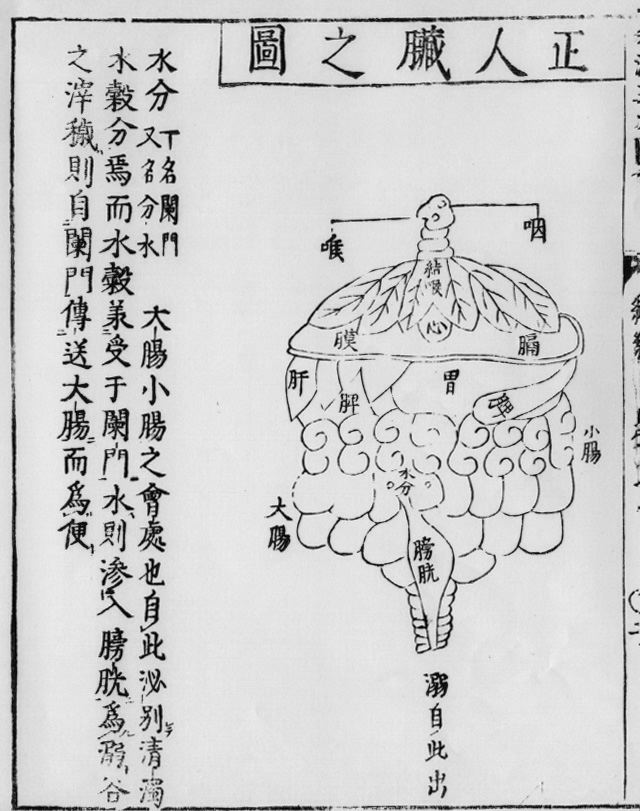 正人臟之圖
咽
喉
結喉
心
膜
膈
肝
脾
胃
小腸
水分
大腸
膀胱
溺自此出
水分 下名闌門 又名分水 大腸小腸之會處也自此泌別清濁
水穀分焉而水穀美受于闌門水則滲入膀胱為溺谷
之滓穢則自闌門傳送大腸而為便